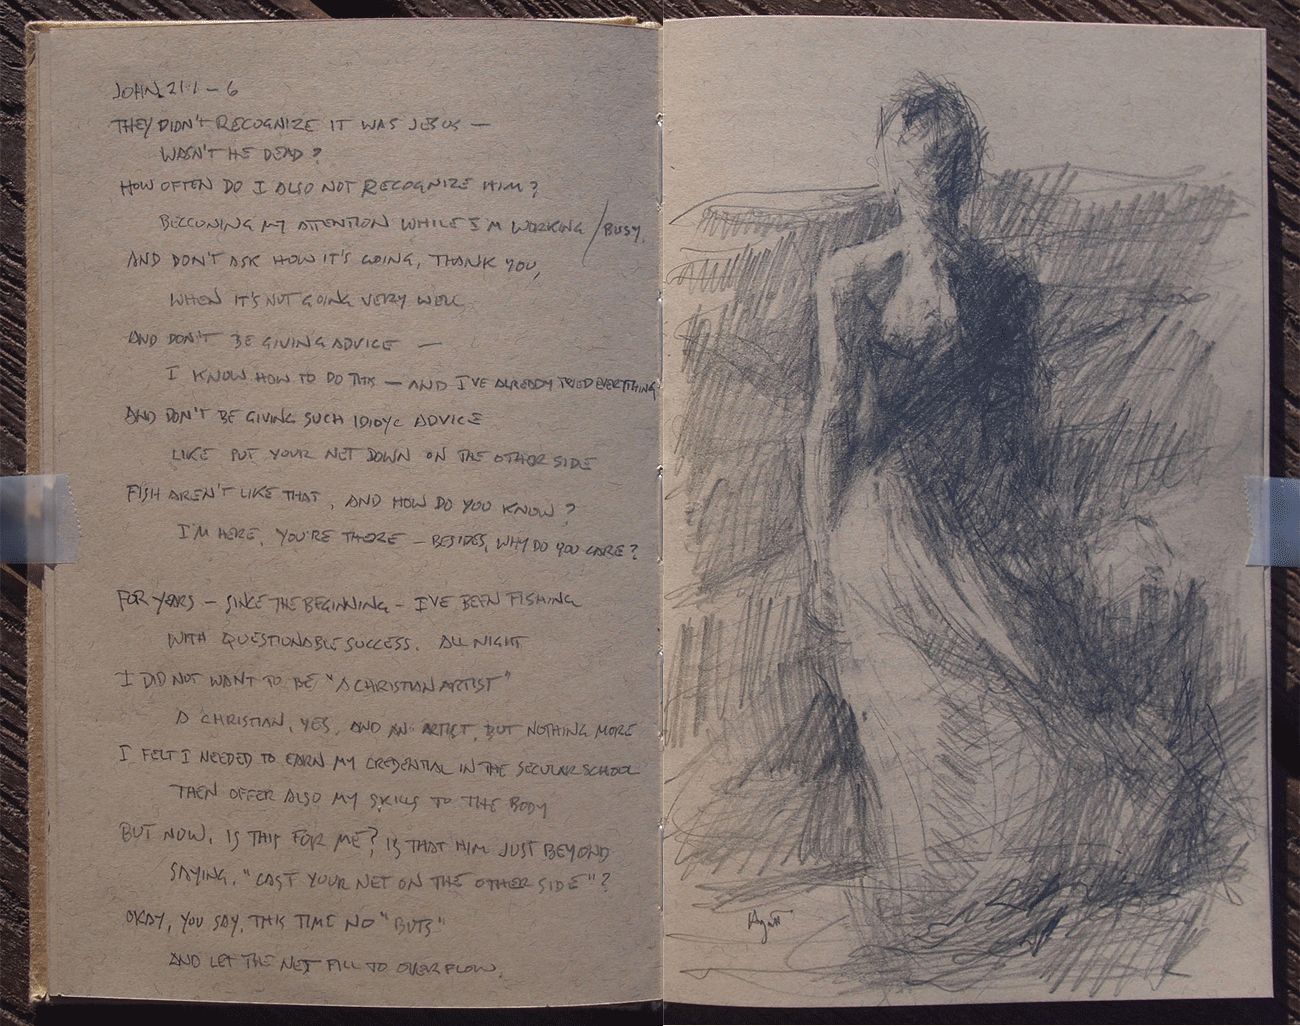 JOHN 21:1 – 6
THEY DIDN'T RECOGNIZE IT WAS JESUS —
WASN'T HE DEAD?
HOW OFTEN DO I ALSO NOT RECOGNIZE HIM?
BECCONING MY ATTENTION WHILE I'M WORKING / BUSY.
AND DON'T ASK HOW IT'S GOING, THANK YOU,
WHEN IT'S NOT GOING VERY WELL
AND DON'T BE GIVING ADVICE —
I KNOW HOW TO DO THIS — AND I'VE ALREADY TRIED EVERYTHING
AND DON'T BE GIVING SUCH IDIOTIC ADVICE
LIKE PUT YOUR NET DOWN ON THE OTHER SIDE
FISH AREN'T LIKE THAT, AND HOW DO YOU KNOW?
I'M HERE, YOU'RE THERE – BESIDES, WHY DO YOU CARE?
FOR YEARS – SINCE THE BEGINNING – I'VE BEEN FISHING
WITH QUESTIONABLE SUCCESS. ALL NIGHT
I DID NOT WANT TO BE "A CHRISTIAN ARTIST"
A CHRISTIAN, YES, AND AN ARTIST, BUT NOTHING MORE
I FELT I NEEDED TO EARN MY CREDENTIAL IN THE SECULAR SCHOOL
THEN OFFER ALSO MY SKILLS TO THE BODY
BUT NOW, IS THIS FOR ME? IS THAT HIM JUST BEYOND
SAYING, "CAST YOUR NET ON THE OTHER SIDE"?
OKAY, YOU SAY, THIS TIME NO "BUTS"
AND LET THE NET FILL TO OVERFLOW.